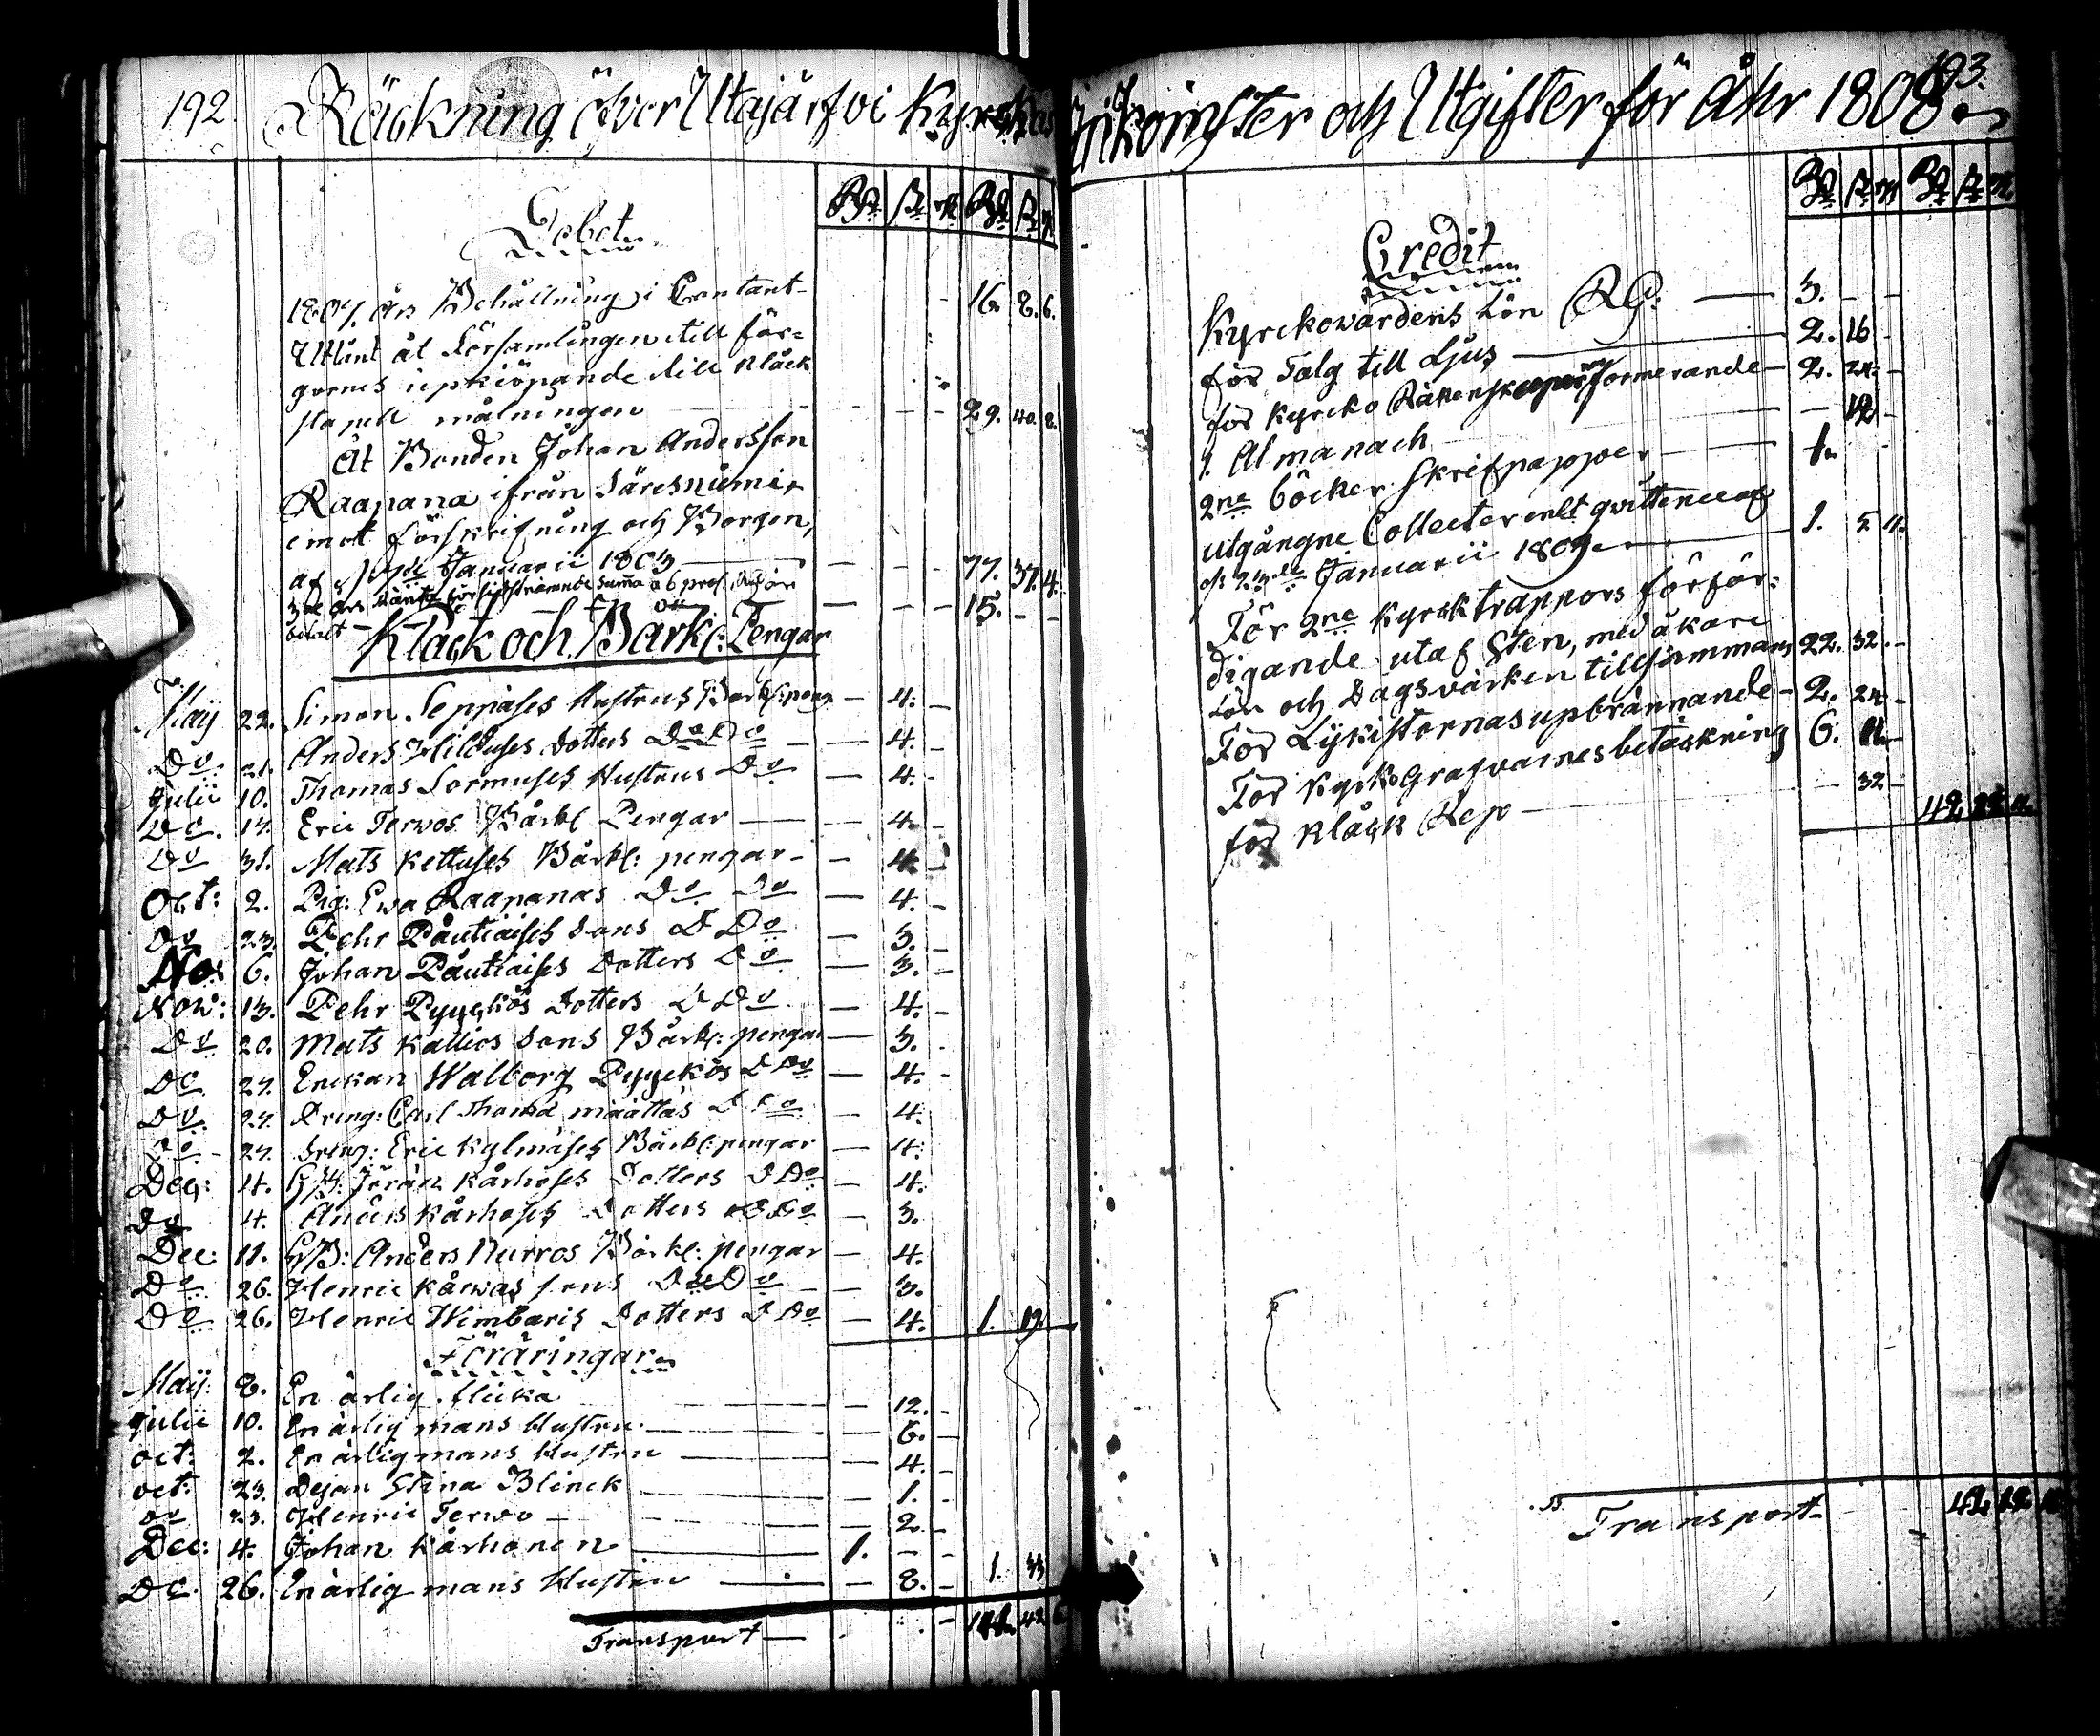 192. Räckning öfver Utajärfvi Kyrckas
Debet
1807. års Behållning i Contant 16. 8. 6.
Utlånt åt Församlingen till fär=
gornes upkiöpande till Klåck
stapell målningen 29. 40. 8.
Åt Bonden Johan Andersson
Raapana ifrån Särcsniemi,
emot förskrifning och Borgen,
af Januarii 1803 77. 37. 4.
15. - -
betalt
Klåck och Bårkl: Pengar
Maij 22. Simon Seppäses Hustrus Bårkl: peng - 4. -
Do 21. Anders Hilduses dotters Do Do - 4. -
Julii 10. Thomas Sormuses Hustrus Do - 4. -
Do. 17. Eric Terwos Bårkl Pengar - 4. -
Do 31. Mats Kettuses Bårkl: pengar - 4. -
Oct: 2. Pig: Ewa Raapanas Do Do - 4. -
Do 23. Pehr Påutiaises Sons D Do - 3. -
No: 6. Johan Påutiaises Dotters Do - 3. -
Now: 13. Pehr Pyyckös Dotters D Do - 4. -
Do 20. Mats Kallios Sons Bårkl: pengar - 3. -
Do 27. Enckan Walborg Pyyckös D Do - 4. -
Do. 27. Dreng: Carl Thomæ määttäs D Do - 4.
Do - 27. Dreng: Eric Kylmäses Bårkl: pengar - 4.
Dec: 4. GB: Jöran Kårhoses Dotters D Do - 4.
Do 4. Anders Kårhoses Dotters D Do - 3.
Dec: 11. GB: Anders Nurros Bårkl: pengar - 4.
Do 26. Henric Kårwas sons Do Do - 3.
Do 26. Henric Wimbaris Dotters D Do - 4. 1. 19.
Föräringar
Maij: 8. En ärlig flicka - 12. -
Julii 10. En ärlig mans Hustru - 6. -
oct: 2. En ärlig mans Hustru - 4. -
oct: 23. Dejan Stina Blinck - 1. -
Do 23. Henric Terwo - 2. -
Dec: 4. Johan Kårhonen 1. - -
Do. 26. En ärlig mans Hustru - 8. - 1. 33
Transport 42
193.
Inkomster och Utgifter för Åhr 1808
Credit
Kyrckowärdens Lön RG: 3. - -
för Talg till Ljus 2. 16 -
för Kyrcko Räkenskapernes formerande 2. 24. -
1. Almanach - 12 -
2ne böcker Skrifpapper 1.
utgångne Collecter enlt qvittence af
d: 23de Januarii 1809 1. 5 4.
För 2ne Kyrcktrappors förfär=
digande utaf Sten, med åkare
Lön och Dagsvärken tillsammans 22. 32. -
För Lijkistornas upbrännande 2. 24 -
För Kyrko Grafvarnes betäckning 6.
för Klåck Rep - 32 -
Transport 42